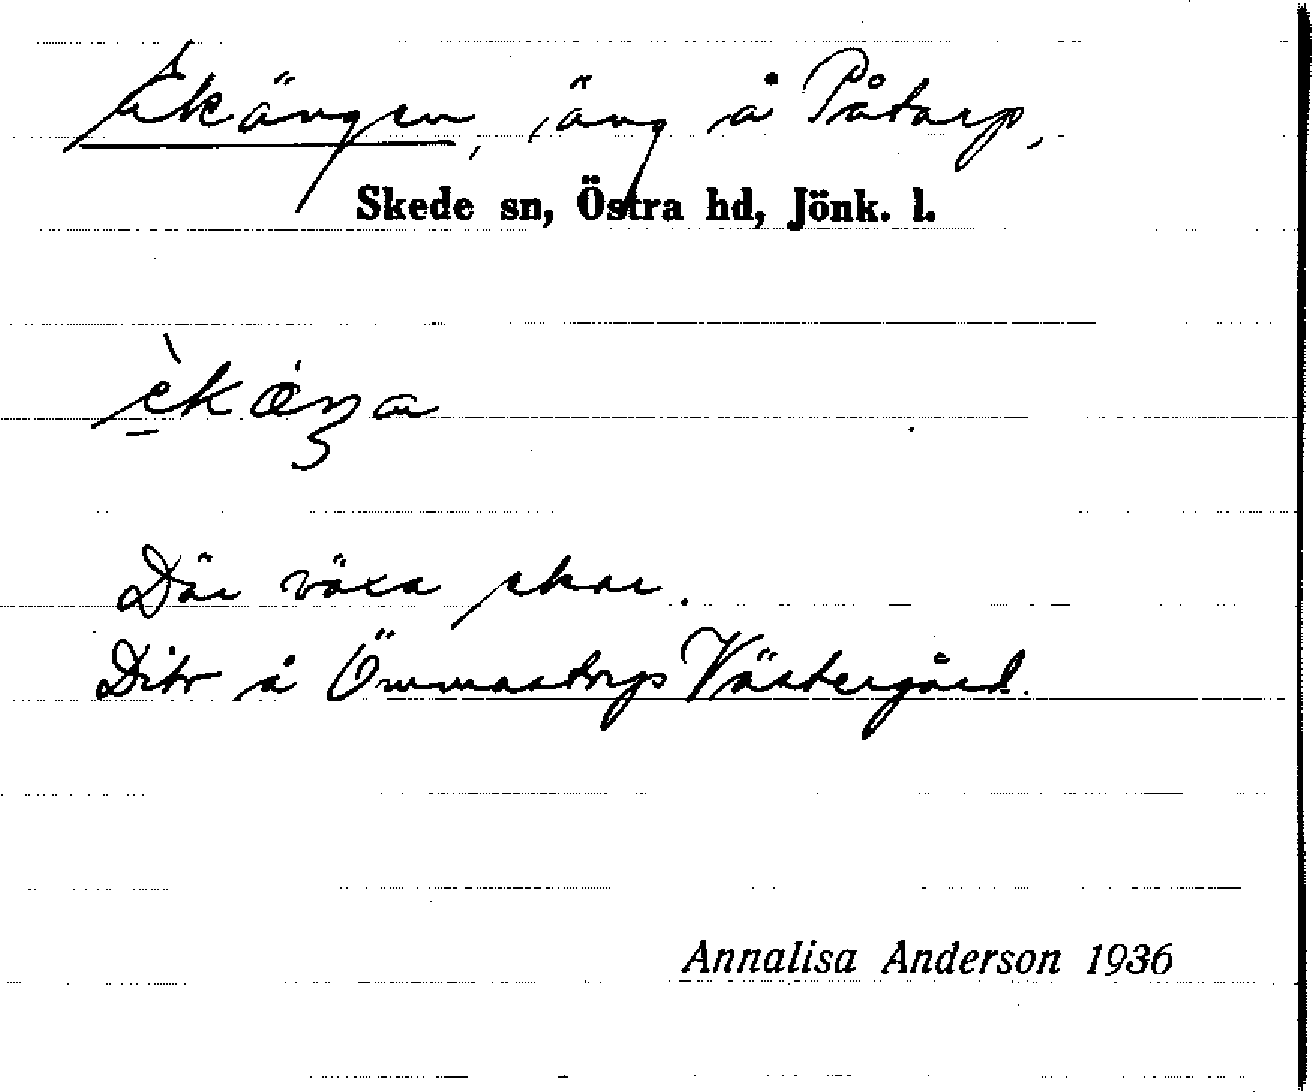 Ekängen, äng å Påtorp,
Skede sn, Östra hd, Jönk. l.
Där växa ekar.
Dito å Ömmastorps Västergård.
Annalisa Anderson 1936